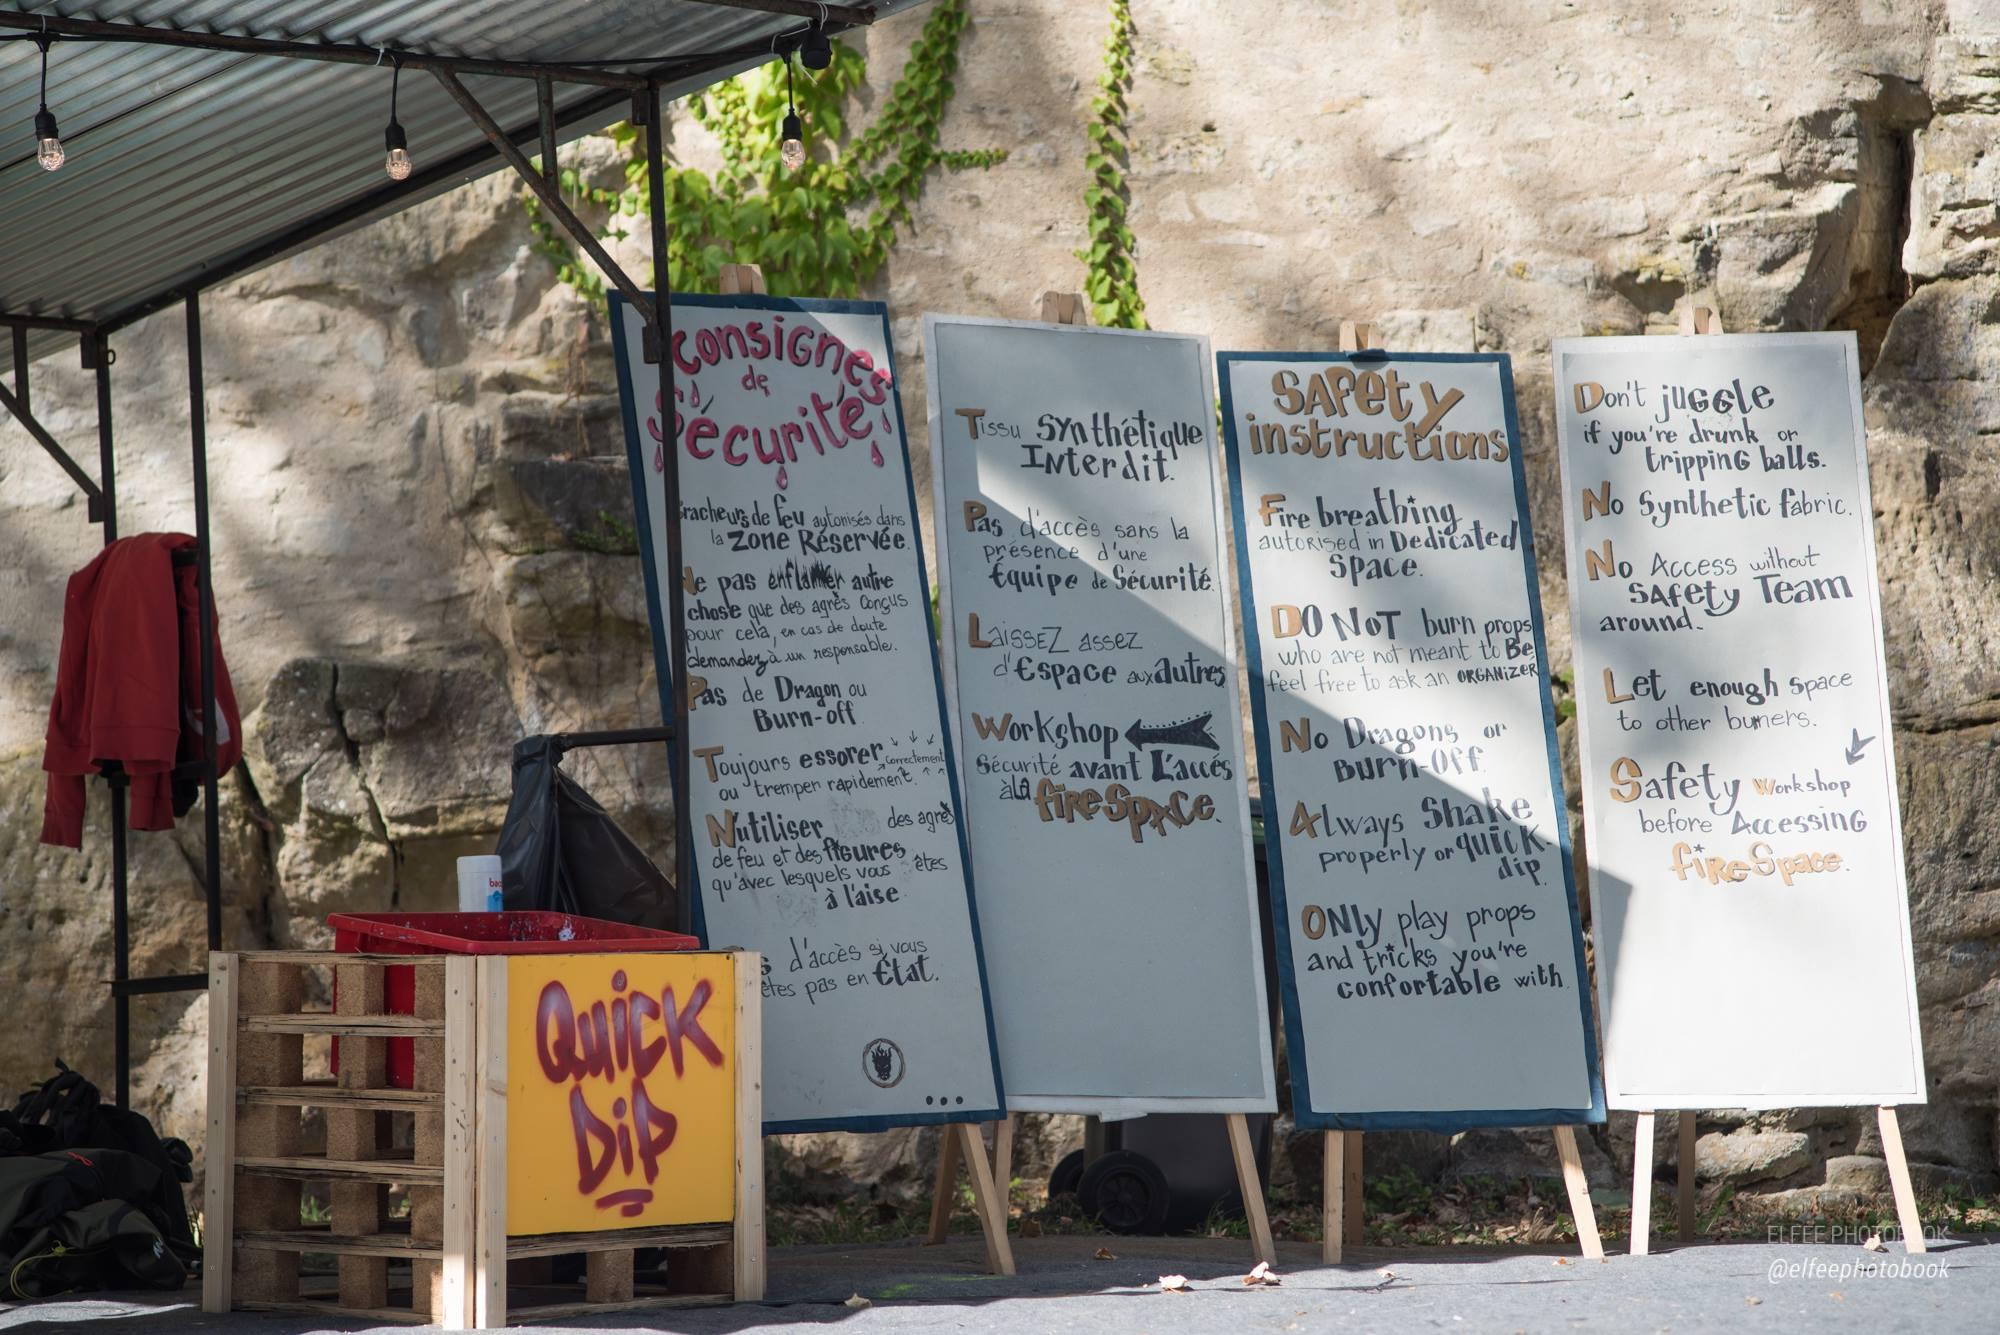 Consignes
de
Sécurité
Cracheurs de feu autorisés dans
la Zone Réservée.
Ne pas enflammer autre
chose que des agrès conçus
pour cela, en cas de doute
demandez à un responsable.
Pas de Dragon ou
Burn-off.
Toujours essorer correctement
ou tremper rapidement.
N'utiliser des agrès
de feu et des figures
qu'avec lesquels vous êtes
à l'aise.
d'accès si vous
êtes pas en État.
...
Tissu Synthétique
Interdit.
Pas d'accès sans la
présence d'une
Équipe de Sécurité.
Laissez assez
d'Espace aux autres.
Workshop
Sécurité avant L'accès
à la fireSpace.
Safety
instructions
Fire breathing
autorised in Dedicated
Space.
DO NOT burn props
who are not meant to Be
feel free to ask an ORGANIZER
No Dragons or
Burn-Off.
Always Shake
properly or quick
dip.
Only play props
and tricks you're
confortable with
Don't juggle
if you're drunk or
tripping balls.
No Synthetic fabric.
No Access without
Safety Team
around.
Let enough space
to other burners.
Safety Workshop
before Accessing
fireSpace.
Quick
Dip
ELFEE PHOTOBOOK
@elfeephotobook